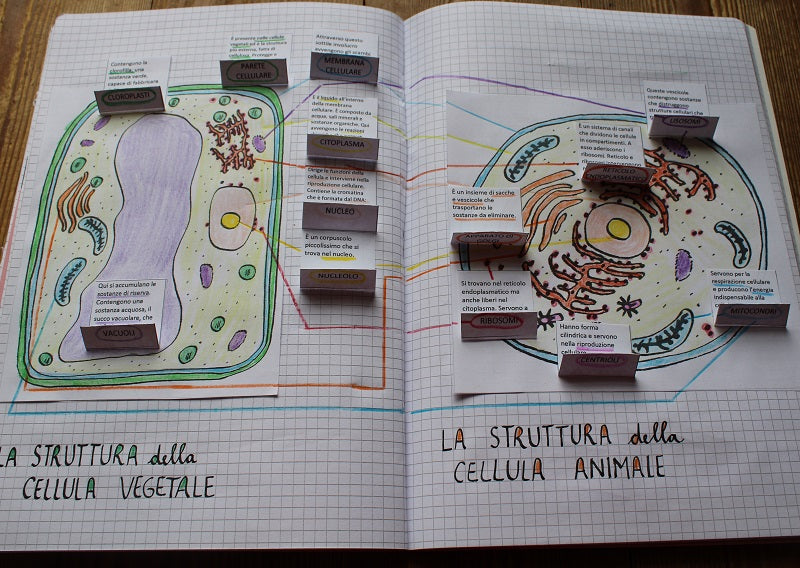 Contengono la
clorofilla, una
sostanza verde,
capace di fabbricare
CLOROPLASTI
È presente nelle cellule
vegetali ed è la struttura
più esterna, fatta di
cellulosa. Protegge e
PARETE
CELLULARE
Attraverso questo
sottile involucro
avvengono gli scambi
MEMBRANA
CELLULARE
È il liquido all'interno
della membrana
cellulare. È composto da
acqua, sali minerali e
sostanze organiche. Qui
avvengono le reazioni
CITOPLASMA
Dirige le funzioni della
cellula e interviene nella
riproduzione cellulare.
Contiene la cromatina
che è formata dal DNA:
NUCLEO
È un corpuscolo
piccolissimo che si
trova nel nucleo.
NUCLEOLO
Qui si accumulano le
sostanze di riserva.
Contengono una
sostanza acquosa, il
succo vacuolare, che
VACUOLI
LA STRUTTURA della
CELLULA VEGETALE
Queste vescicole
contengono sostanze
che distruggono
strutture cellulari che
LISOSOMI
È un sistema di canali
che dividono le cellula
in compartimenti. A
esso aderiscono i
ribosomi. Reticolo e
ribosomi intervengono
RETICOLO
ENDOPLASMATICO
È un insieme di sacche
e vescicole che
trasportano le
sostanze da eliminare.
APPARATO DI
GOLGI
Si trovano nel reticolo
endoplasmatico ma
anche liberi nel
citoplasma. Servono a
RIBOSOMI
Hanno forma
cilindrica e servono
nella riproduzione
cellulare
CENTRIOLI
Servono per la
respirazione cellulare
e producono l'energia
indispensabile alla
MITOCONDRI
LA STRUTTURA della
CELLULA ANIMALE